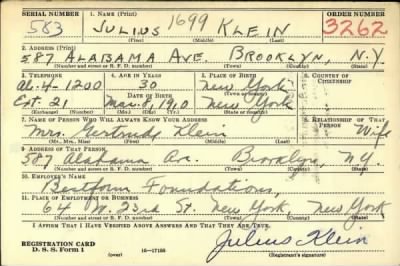 SERIAL NUMBER 1. Name (Print) ORDER NUMBER
583 JULIUS 1699 KLEIN 3262
(First) (Middle) (Last)
2. Address (Print)
587 ALABAMA AVE. BROOKLYN, N.Y.
(Number and street or R. F. D. number) (Town) (County) (State)
3. Telephone 4. Age in Years 5. Place of Birth 6. Country of Citizenship
Al. 4-1200 30 New York
Date of Birth (Town or county)
Ext. 21 Mar. 8, 1910 New York
(Exchange) (Number) (Mo.) (Day) (Yr.) (State or country)
7. Name of Person Who Will Always Know Your Address 8. Relationship of That Person
Mrs. Gertrude Klein Wife
(Mr., Mrs., Miss) (First) (Middle) (Last)
9. Address of That Person
587 Alabama Av. Brooklyn, N.Y.
(Number and street or R. F. D. number) (Town) (County) (State)
10. Employer's Name
Bestform Foundations,
11. Place of Employment or Business
64 W. 23rd St. New York, New York
(Number and street or R. F. D. number) (Town) (County) (State)
I Affirm That I Have Verified Above Answers and That They Are True.
REGISTRATION CARD
D. S. S. Form 1 16—17105 Julius Klein
(Registrant's signature)